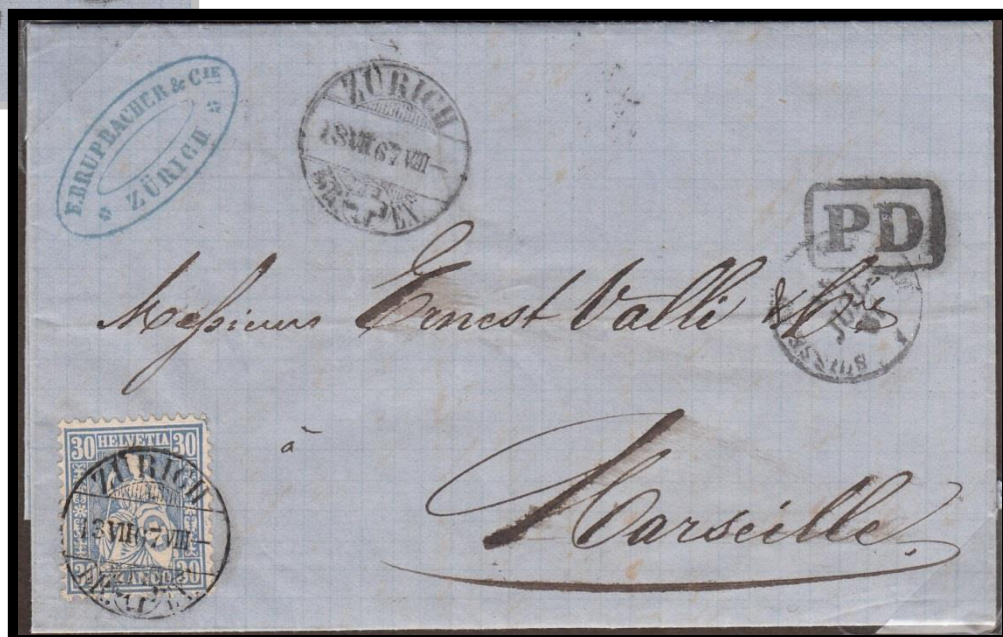 F. BRUPBACHER & CIE
ZÜRICH
ZÜRICH
18 VII 67 VIII –
PD
SUISSE
JUIL
Messieurs Ernest Valli & Cie
à
Marseille
30 HELVETIA 30
ZÜRICH
18 VII 67 VIII –
30 30